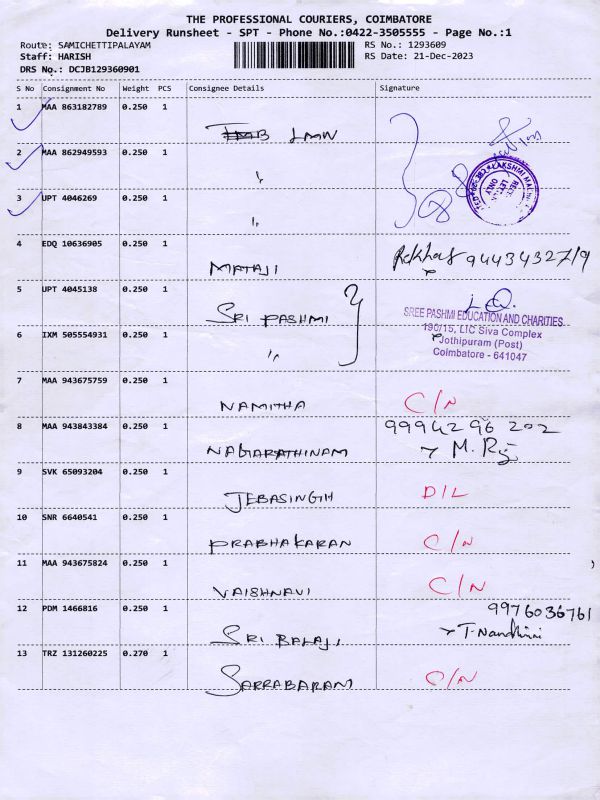 THE PROFESSIONAL COURIERS, COIMBATORE
Delivery Runsheet - SPT - Phone No.:0422-3505555 - Page No.:1
Route: SAMICHETTIPALAYAM
RS No.: 1293609
Staff: HARISH
RS Date: 21-Dec-2023
DRS No.: DCJB129360901
S No Consignment No Weight PCS Consignee Details Signature
1 MAA 863182789 0.250 1 LMW
2 MAA 862949593 0.250 1 "
3 UPT 4046269 0.250 1 "
4 EDQ 10636905 0.250 1 MATAJI 9443432719
5 UPT 4045138 0.250 1 SRI PASHMI
SREE PASHMI EDUCATION AND CHARITIES
190/15, LIC Siva Complex
Jothipuram (Post)
Coimbatore - 641047
6 IXM 505554931 0.250 1 "
7 MAA 943675759 0.250 1 NAMITHA C/N
8 MAA 943843384 0.250 1 NAGARATHINAM 99942 96 202
9 SVK 65093204 0.250 1 JEBASINGH D/L
10 SNR 6640541 0.250 1 PRABHAKARAN C/N
11 MAA 943675824 0.250 1 VAISHNAVI C/N
12 PDM 1466816 0.250 1 SRI BALAJI 9976036761
T. Nandhini
13 TRZ 131260225 0.270 1 SARRABARAM C/N